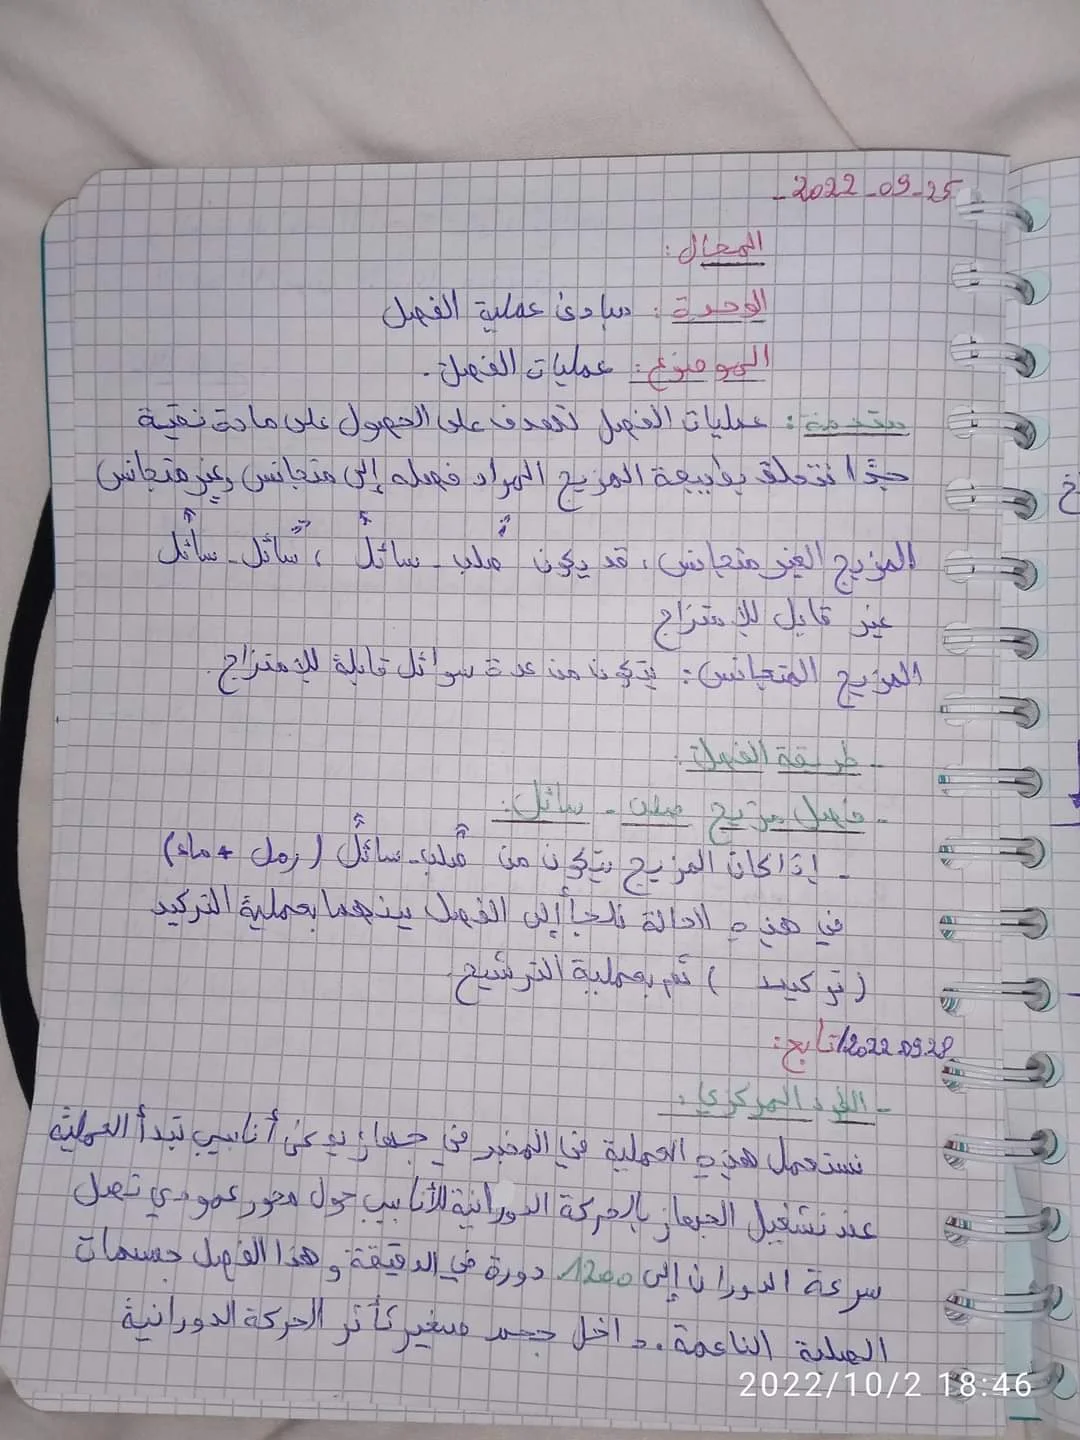 2022-09-25-
المجال:
الوحدة: مبادئ عملية الفصل
الموضوع: عمليات الفصل.
مقدمة: عمليات الفصل تهدف على الحصول على مادة نقية
جدًا تتعلق بطبيعة المزيج المراد فصله إلى متجانس وغير متجانس
المزيج الغير متجانس، قد يكون صلب - سائل، سائل - سائل
غير قابل للإمتزاج
المزيج المتجانس: يتكون من عدة سوائل قابلة للإمتزاج.
- طريقة الفصل:
- فصل مزيج صلب - سائل:
- إذا كان المزيج يتكون من صلب - سائل (رمل + ماء)
في هذه الحالة نلجأ إلى الفصل بينهما بعملية التركيد
(تركيد) ثم بعملية الترشيح.
2022.09.28/ تابع:
- الطرد المركزي:
نستعمل هذه العملية في المخبر في جهاز أنابيب تبدأ العملية
عند تشغيل الجهاز بالحركة الدورانية للأنابيب حول محور عمودي تصل
سرعة الدوران إلى 1200 دورة في الدقيقة وهذا الفصل جسمات
الصلبة الناعمة. داخل حجم صغير تأثر الحركة الدورانية
2022/10/2 18:46